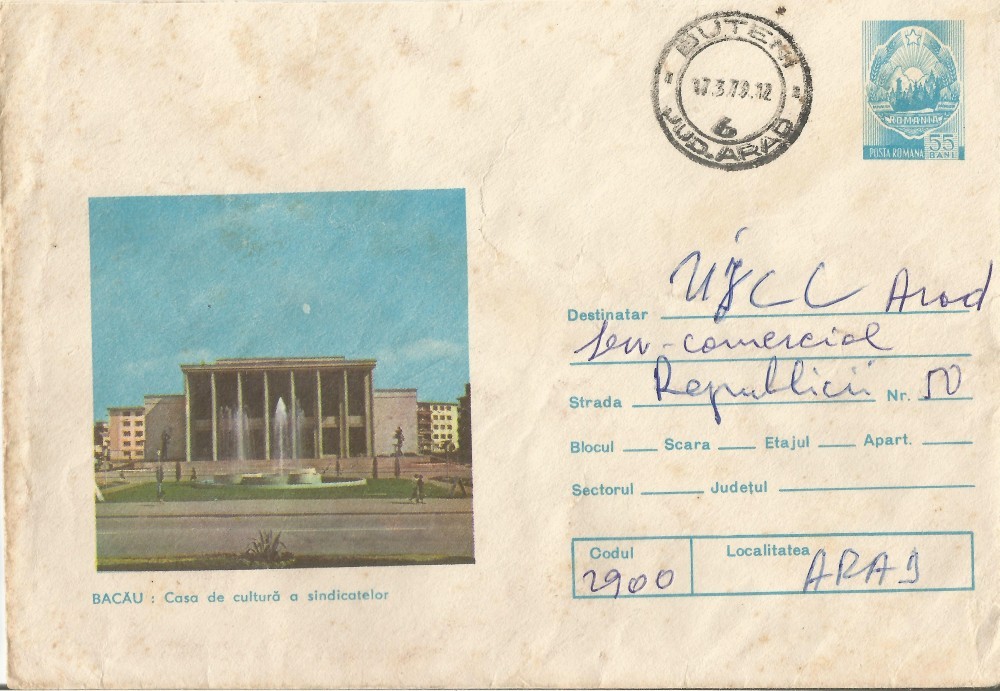 BUTENI
17.3.79.12
6
JUD. ARAD
ROMANIA
POSTA ROMANA 55 BANI
Destinatar UJCC Arad
Serv-comercial
Strada Republicii Nr. 50
Blocul Scara Etajul Apart.
Sectorul Județul
Codul Localitatea
2900 ARAD
BACĂU : Casa de cultură a sindicatelor